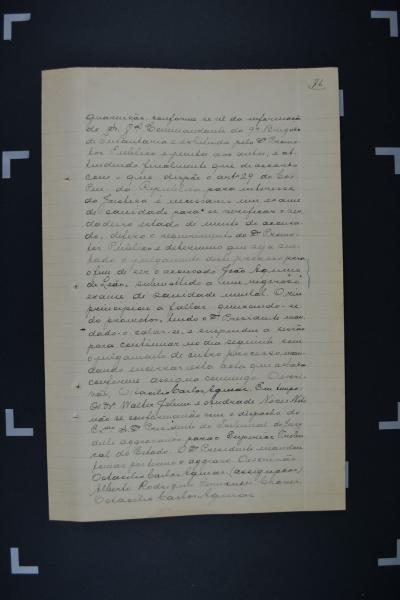 guarnição, conforme se vê da informação
do Sr. Commandante da 9ª Brigada
de Infantaria e exhibida pelo Dr Promo-
tor Publico e junta aos autos; e at-
tendendo finalmente que de accordo
com o que dispõe o artº 29 do Cod.
Pen. da Republica para interesse
da Justiça é necessario um exame
de sanidade para se verificar o ver-
dadeiro estado de mente do accusa-
do, defiro o requerimento do Dr Promo-
tor Publico e determino que seja sus-
penso o julgamento deste processo para
o fim de ser o accusado João Aquino
de Leão, submettido a um rigoroso
exame de sanidade mental. O réu
principiou a fallar
do promotor, tendo o Dr Presidente man-
dado-o calar-se, e suspendeu a sessão
para continuar no dia seguinte com
o julgamento de outro processo, man-
dando encerrar esta acta que assigna
conforme assigna commigo. O escri-
vão, Octacilio Carlos Aguiar. Em tempo:
O Dr Walter Jobim e Andrade Neves Netto
não se conformando com o disposto do
Exmo Sr. Dr Presidente do Tribunal do Jury
delle aggravarão para o Superior Tribu-
nal do Estado. O Dr Presidente mandou
tomar por termo o aggravo. O escrivão
Octacilio Carlos Aguiar. (assignados)
Alberto Rodrigues Fernandes Chaves,
Octacilio Carlos Aguiar